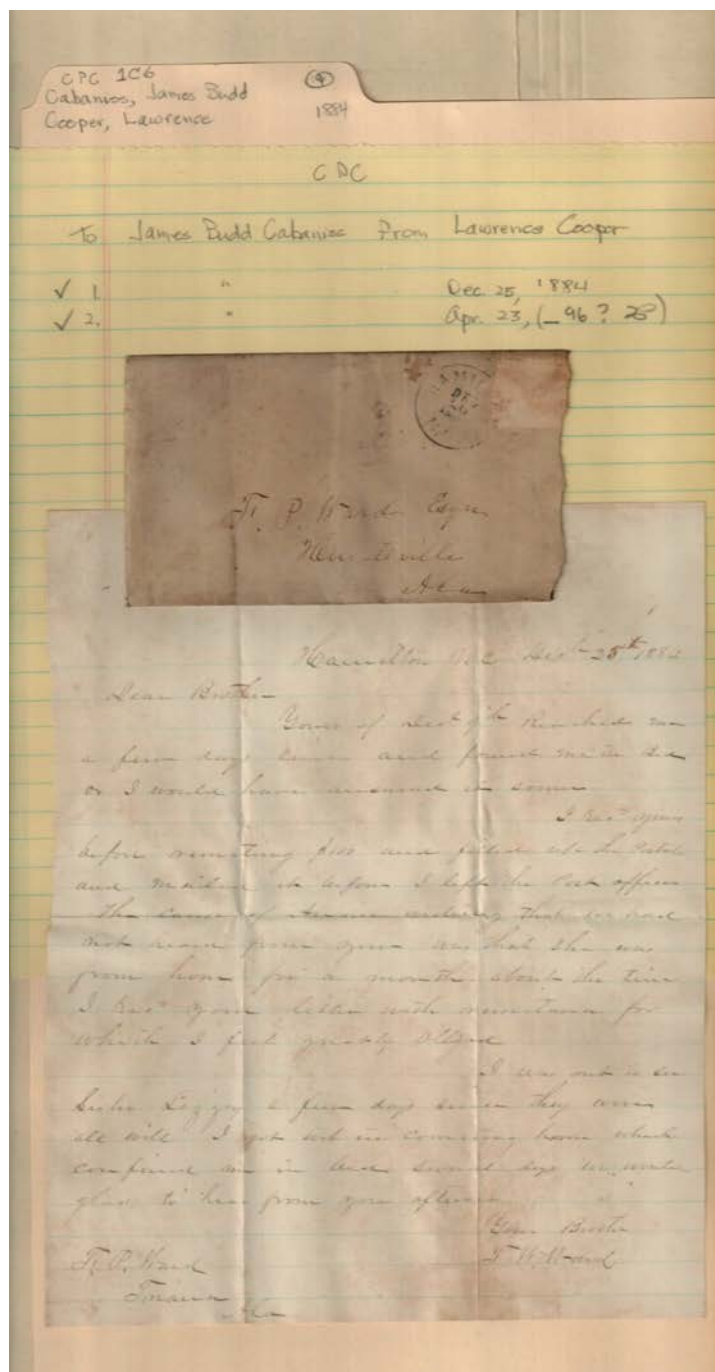 CPC 1C6
Cabaniss, James Budd
Cooper, Lawrence
④
1884
CPC
To James Budd Cabaniss From Lawrence Cooper
✓ 1. " Dec. 25, 1884
✓ 2. " Apr. 23, (_96 ? 28)
P. Ward Esqr
Huntsville
Ala
Hamilton 25th
Dear Brother
Yours of 9th Reached me
a few days since and found me in
or I would have answered it sooner
I Recd yours
before and filled
and mailed it before I left the Post office
The cause of that we had
not heard from you was that she was
from home for a month about the time
I Recd your letter with remittance for
which I feel greatly
I was out to see
a few days since they were
all well I got wet in coming home which
confined me in bed several days
glad to hear from you often
Your Brother
Ward
P. Ward
Triana
Ala